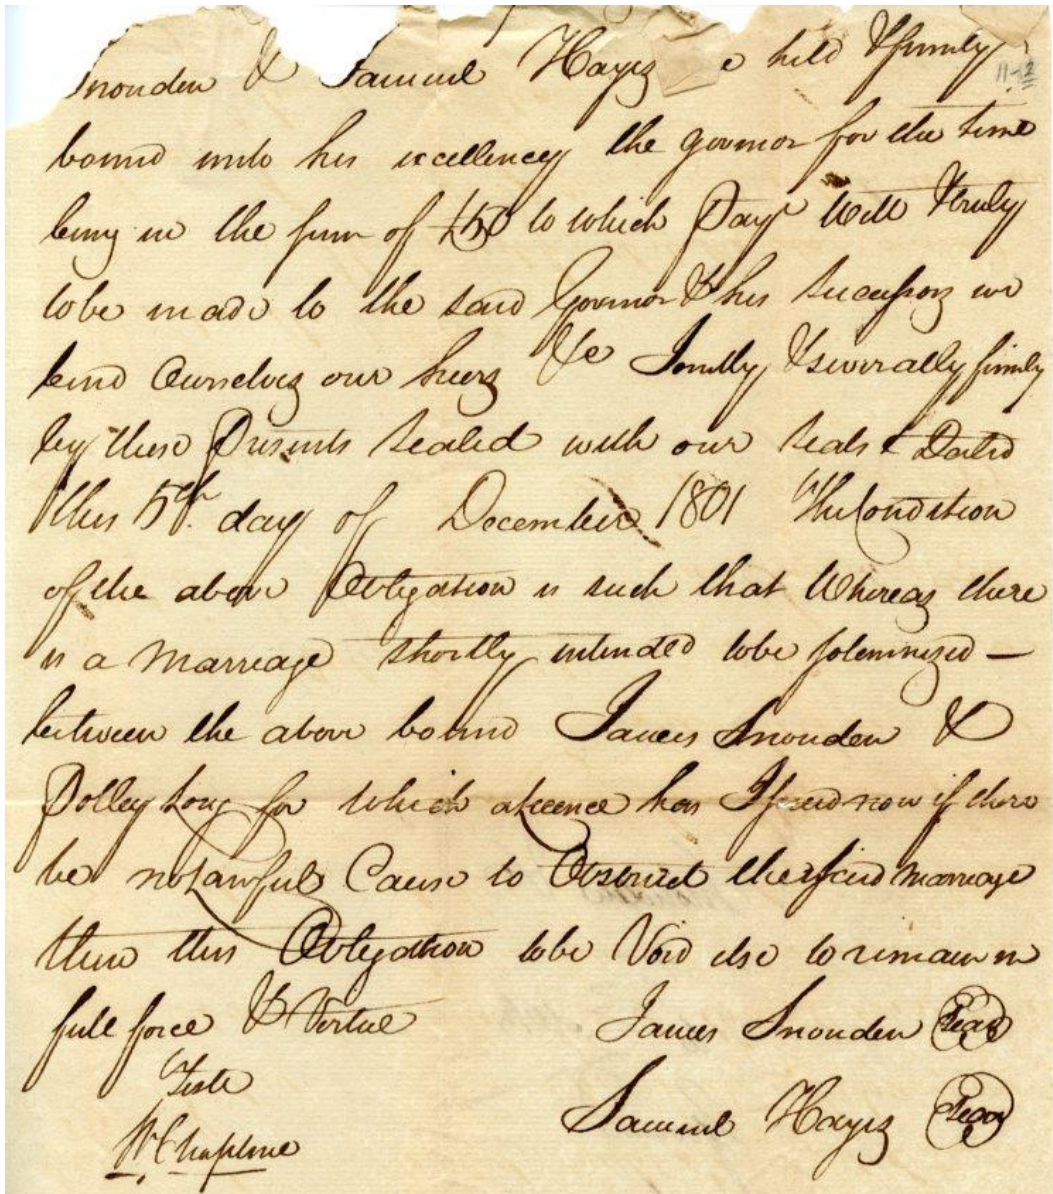 Snouden & Samuel Hayes held & firmly
bound unto his excellency the govnor for the time
being in the sum of £50 to which Paymt Well & truly
to be made to the said Govnor & his Successors we
bind Ourselves our heirs &c Jointly & severally firmly
by these Presents Sealed with our Seals & Dated
this 5th day of December 1801 The Condition
of the above Obligation is such that Whereas there
is a Marriage shortly intended to be solemnized —
between the above bound James Snouden &
Polley Long for which a licence has Issued now if there
be no Lawful Cause to Obstruct the said marriage
then this Obligation to be Void else to remain in
full force & Virtue
James Snouden Seal
Teste
Samuel Hayes Seal
W Chapline